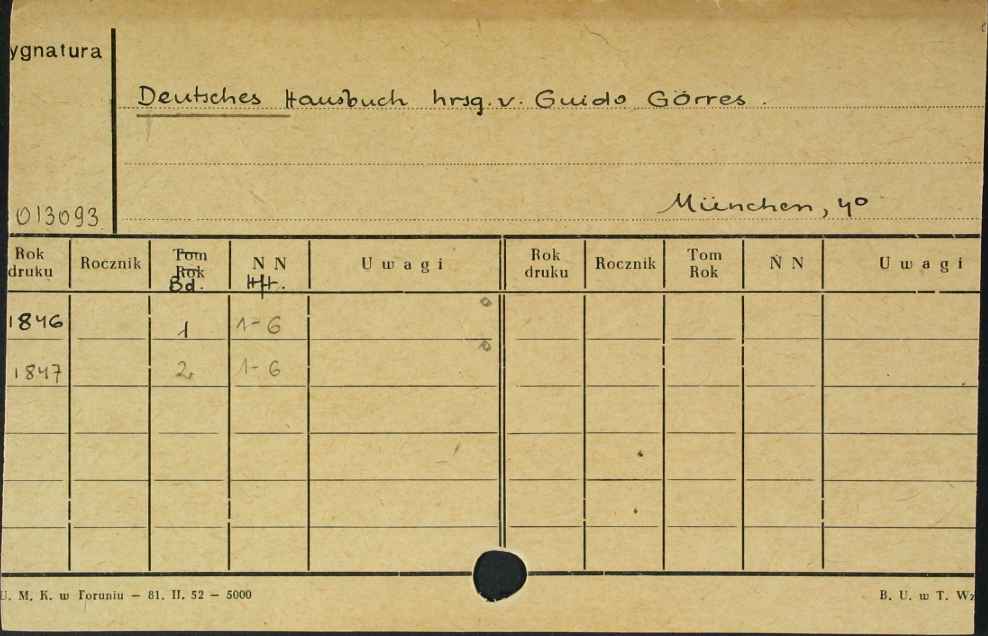 ygnatura
Deutsches Hausbuch hrsg. v. Guido Görres.
München, 4°
013093
Rok druku Rocznik Tom Rok Bd. N N Hft. Uwagi Rok druku Rocznik Tom Rok N N Uwagi
1846 1 1-6
1847 2. 1-6
U. M. K. w Toruniu — 81. II. 52 — 5000 B. U. w T. Wz